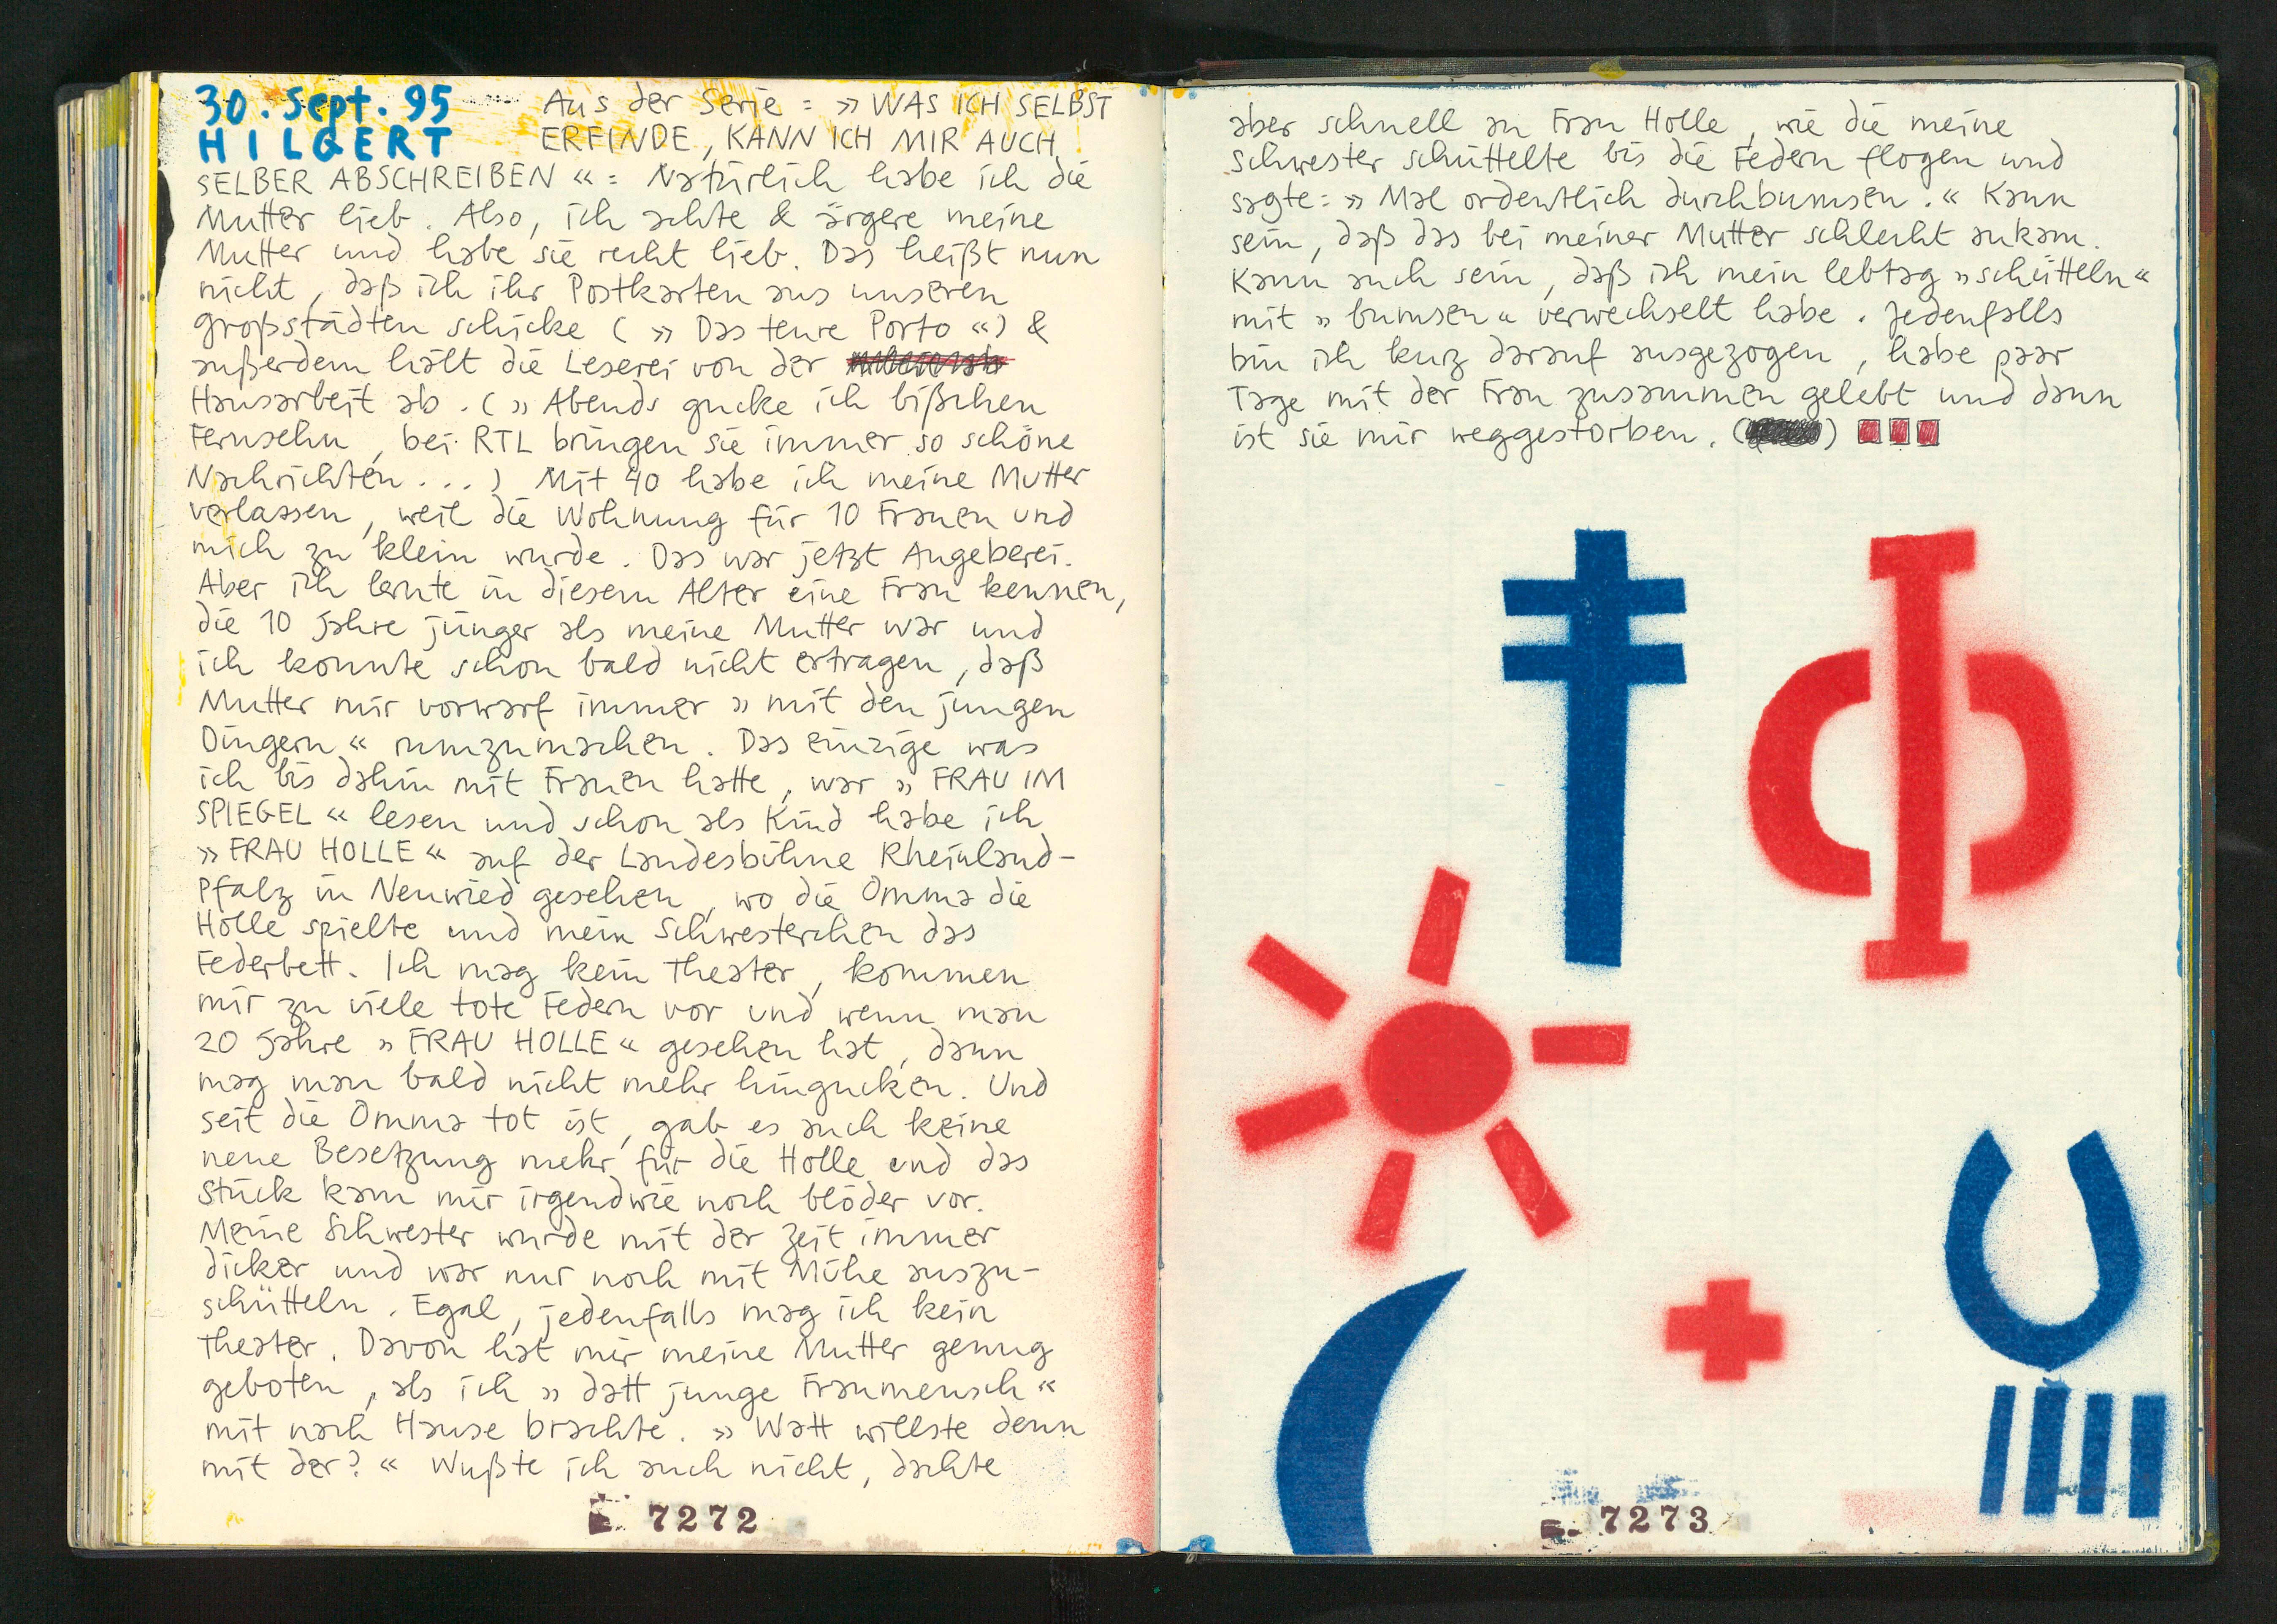 30. Sept. 95
HILGERT
Aus der Serie: »WAS ICH SELBST
ERFINDE, KANN ICH MIR AUCH
SELBER ABSCHREIBEN«: Natürlich habe ich die
Mutter lieb. Also, ich achte & ärgere meine
Mutter und habe sie recht lieb. Das heißt nun
nicht, daß ich ihr Postkarten aus unseren
Großstädten schicke (»Das teure Porto«) &
außerdem hält die Leserei von der
Hausarbeit ab. (»Abends gucke ich bißchen
Fernsehn, bei RTL bringen sie immer so schöne
Nachrichten...) Mit 40 habe ich meine Mutter
verlassen, weil die Wohnung für 10 Frauen und
mich zu klein wurde. Das war jetzt Angeberei.
Aber ich lernte in diesem Alter eine Frau kennen,
die 10 Jahre jünger als meine Mutter war und
ich konnte schon bald nicht ertragen, daß
Mutter mir vorwarf immer »mit den jungen
Dingern« rumzumachen. Das einzige was
ich bis dahin mit Frauen hatte, war »FRAU IM
SPIEGEL« lesen und schon als Kind habe ich
»FRAU HOLLE« auf der Landesbühne Rheinland-
Pfalz in Neuwied gesehen, wo die Omma die
Holle spielte und mein Schwesterchen das
Federbett. Ich mag kein Theater, kommen
mir zu viele tote Federn vor und wenn man
20 Jahre »FRAU HOLLE« gesehen hat, dann
mag man bald nicht mehr hingucken. Und
seit die Omma tot ist, gab es auch keine
neue Besetzung mehr für die Holle und das
Stück kam mir irgendwie noch blöder vor.
Meine Schwester wurde mit der Zeit immer
dicker und war nur noch mit Mühe auszu-
schütteln. Egal, jedenfalls mag ich kein
Theater. Davon hat mir meine Mutter genug
geboten, als ich »datt junge Fraumensch«
mit nach Hause brachte. »Watt willste denn
mit der?« Wußte ich auch nicht, dachte
7272
aber schnell an Frau Holle, wie die meine
Schwester schüttelte bis die Federn flogen und
sagte: »Mal ordentlich durchbumsen.« Kann
sein, daß das bei meiner Mutter schlecht ankam.
Kann auch sein, daß ich mein lebtag »schütteln«
mit »bumsen« verwechselt habe. Jedenfalls
bin ich kurz darauf ausgezogen, habe paar
Tage mit der Frau zusammen gelebt und dann
ist sie mir weggestorben. ( )
7273